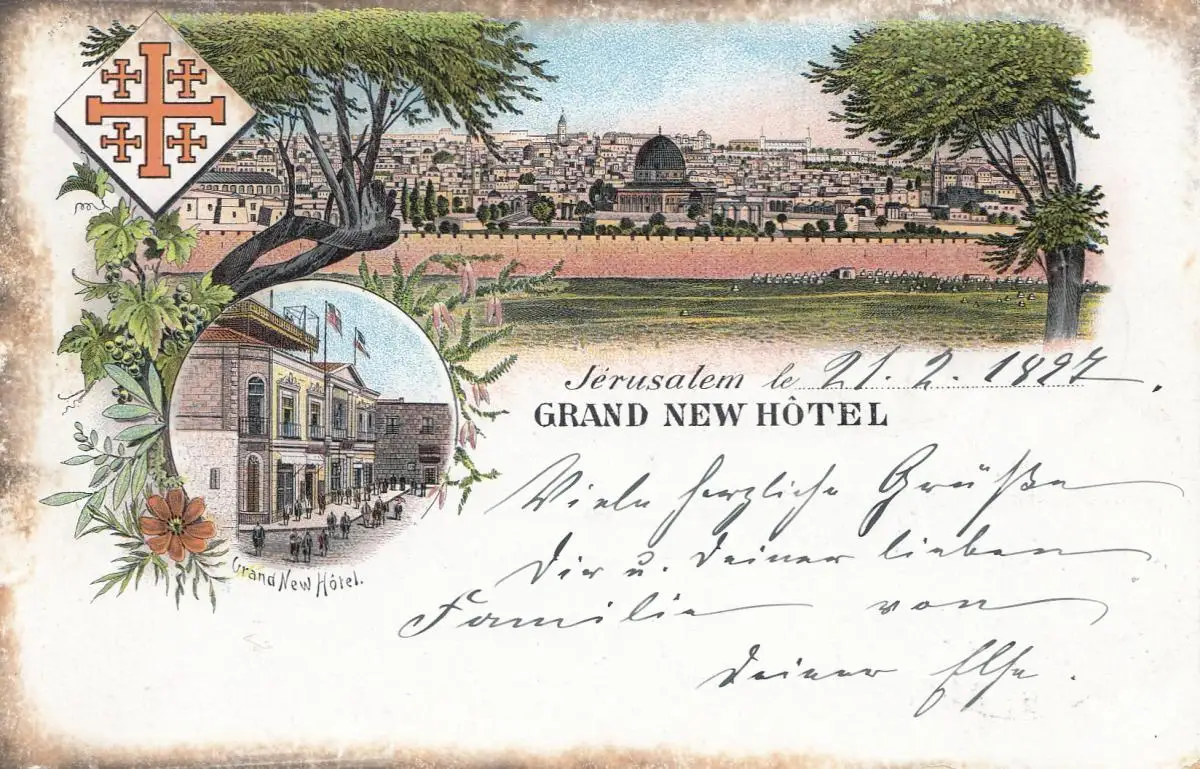 Jérusalem le 21. 2. 1897.
GRAND NEW HÔTEL
Viele herzliche Grüße
Dir u. Deiner lieben
Familie von
Deiner Else.
Grand New Hôtel.